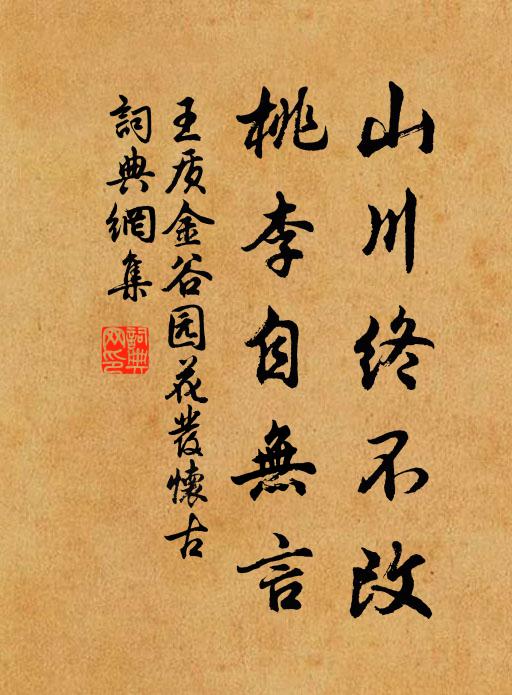 山川终不改
桃李自無言
王质金谷园花發懷古
詞典網集
詞典網印